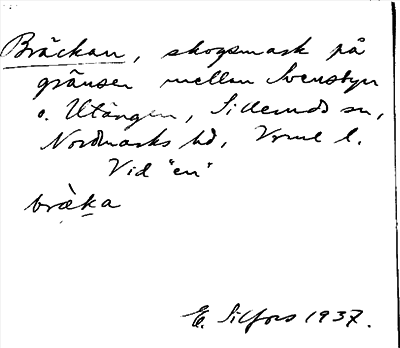 Bräckan, skogsmark på
gränsen mellan Svensbyn
o. Utången, Sillerud sn,
Nordmarks hd, Vrml l.
Vid "en"
bràka
E. Silfors 1937.